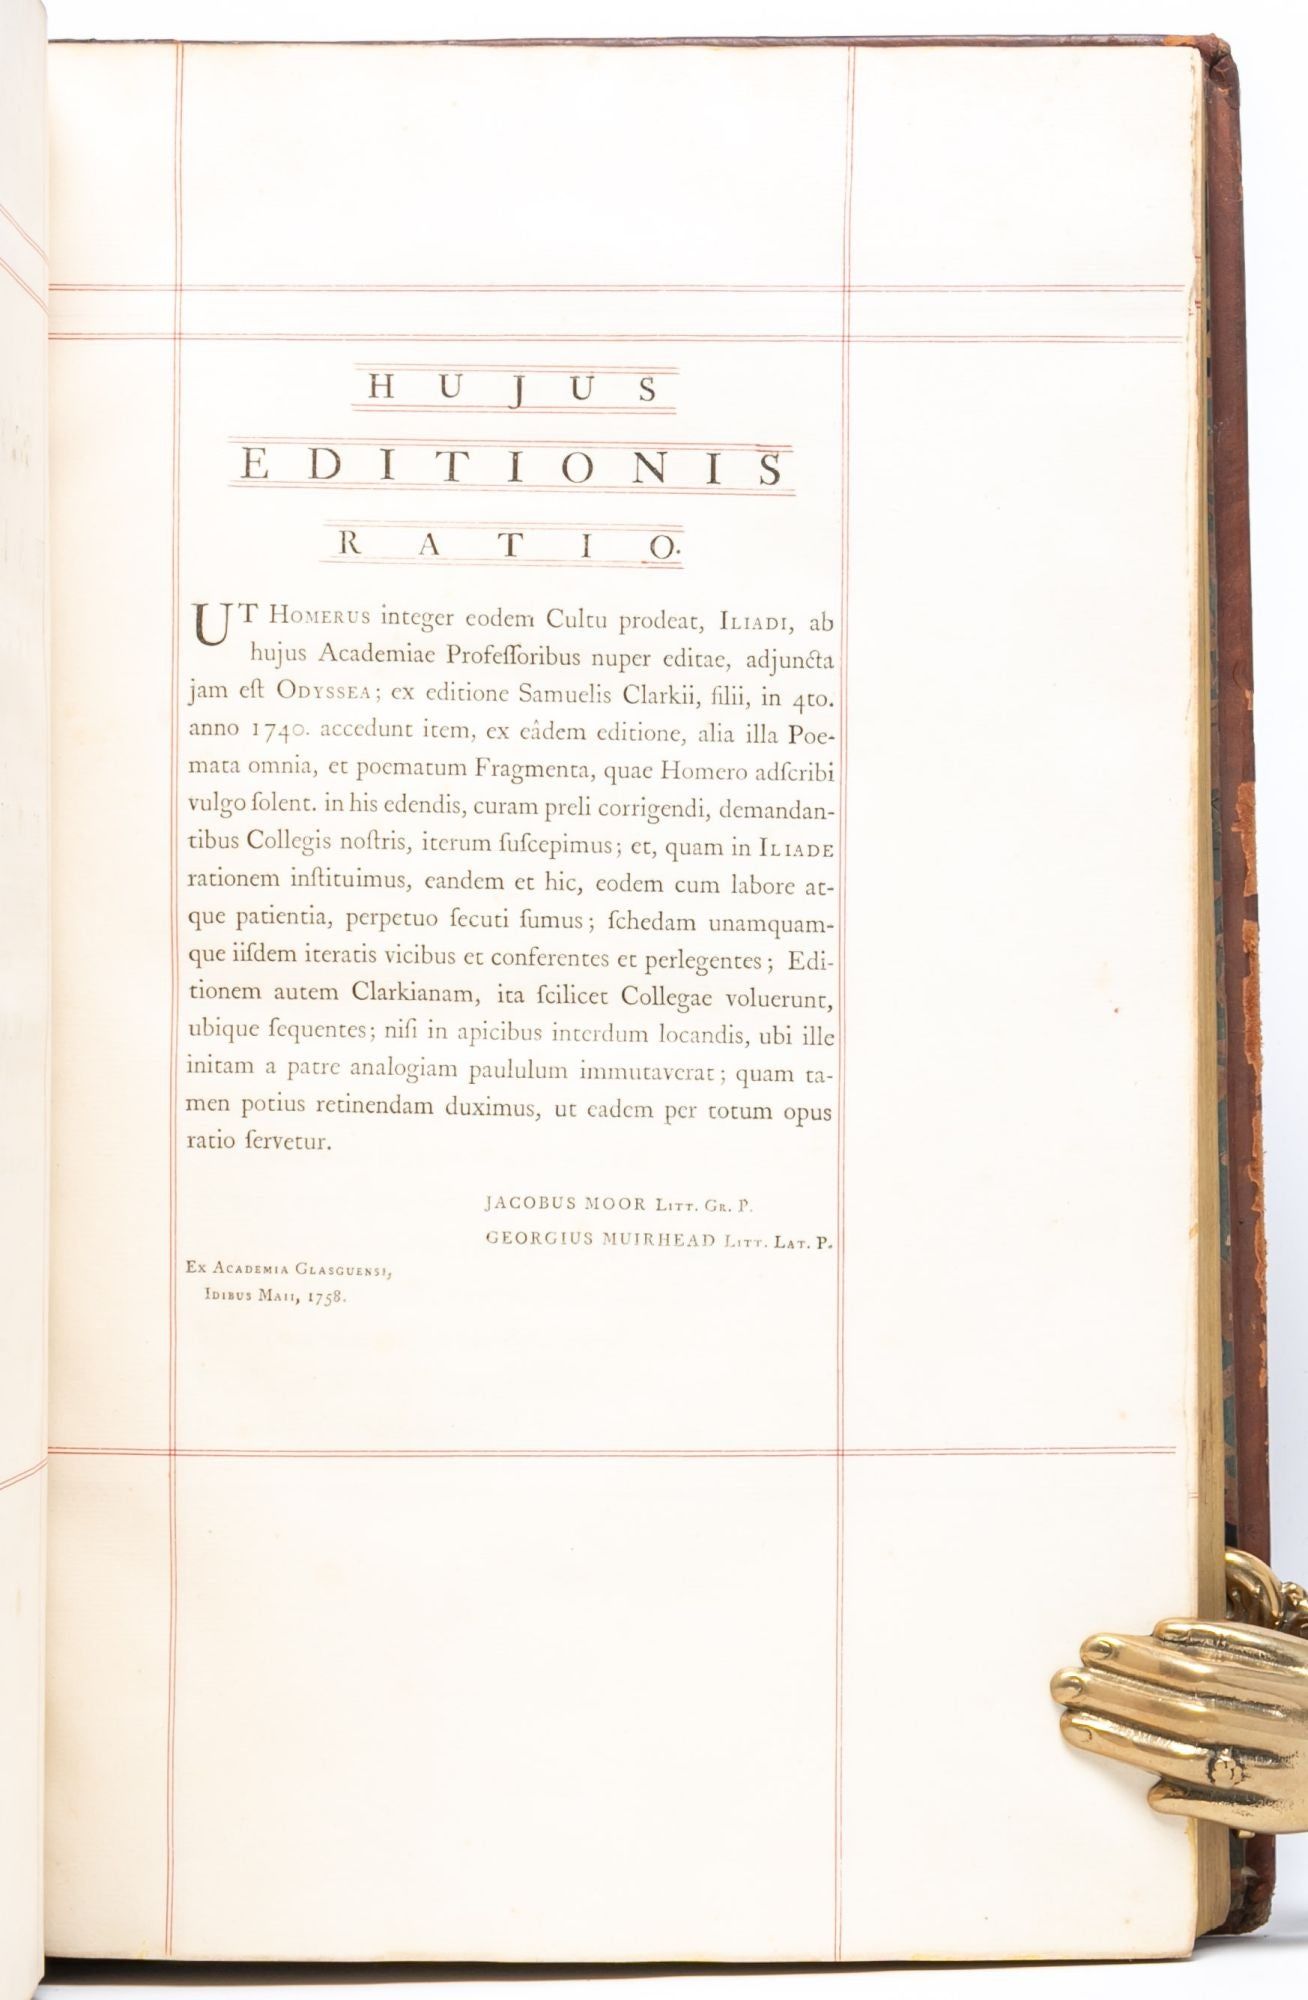 HUJUS
EDITIONIS
RATIO.
UT HOMERUS integer eodem Cultu prodeat, ILIADI, ab
hujus Academiae Profeſſoribus nuper editae, adjuncta
jam eſt ODYSSEA; ex editione Samuelis Clarkii, filii, in 4to.
anno 1740. accedunt item, ex eâdem editione, alia illa Poe-
mata omnia, et poematum Fragmenta, quae Homero adſcribi
vulgo ſolent. in his edendis, curam preli corrigendi, demandan-
tibus Collegis noſtris, iterum ſuſcepimus; et, quam in ILIADE
rationem inſtituimus, eandem et hic, eodem cum labore at-
que patientia, perpetuo ſecuti ſumus; ſchedam unamquam-
que iiſdem iteratis vicibus et conferentes et perlegentes; Edi-
tionem autem Clarkianam, ita ſcilicet Collegae voluerunt,
ubique ſequentes; niſi in apicibus interdum locandis, ubi ille
initam a patre analogiam paululum immutaverat; quam ta-
men potius retinendam duximus, ut eadem per totum opus
ratio ſervetur.
JACOBUS MOOR LITT. GR. P.
GEORGIUS MUIRHEAD LITT. LAT. P.
EX ACADEMIA GLASGUENSI,
IDIBUS MAII, 1758.